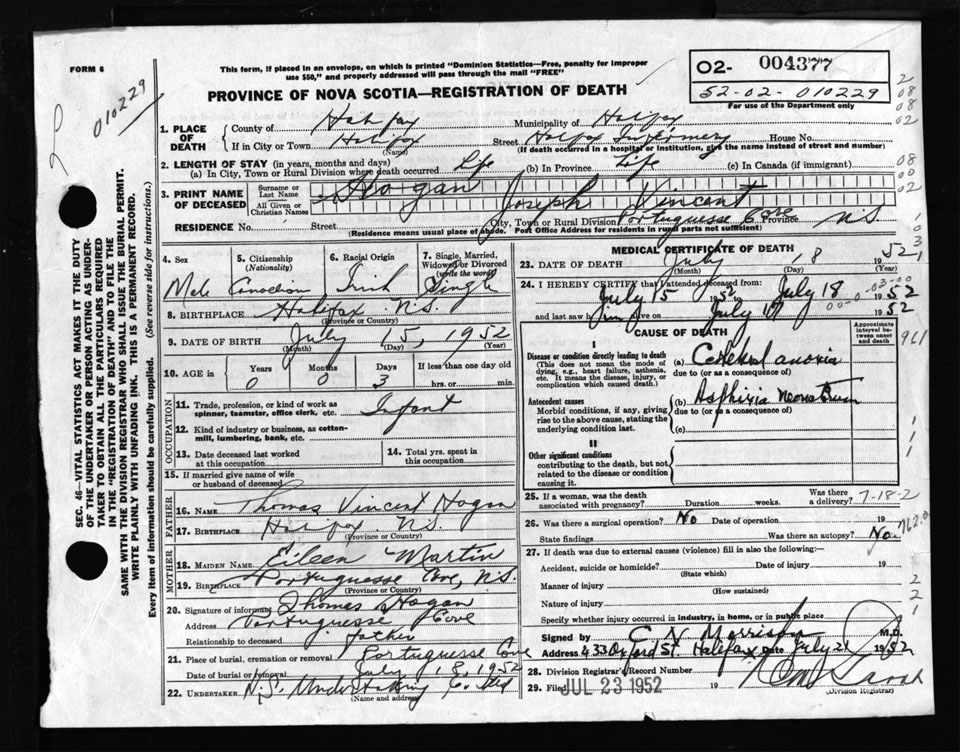 FORM 6
This form, if placed in an envelope, on which is printed "Dominion Statistics—Free, penalty for improper
use $50," and properly addressed will pass through the mail "FREE"
PROVINCE OF NOVA SCOTIA—REGISTRATION OF DEATH
02- 004377
52-02-010229
For use of the Department only
010229
SEC. 46—VITAL STATISTICS ACT MAKES IT THE DUTY
OF THE UNDERTAKER OR PERSON ACTING AS UNDER-
TAKER TO OBTAIN ALL THE PARTICULARS REQUIRED
IN THE "REGISTRATION OF DEATH" AND TO FILE THE
SAME WITH THE DIVISION REGISTRAR WHO SHALL ISSUE THE BURIAL PERMIT.
WRITE PLAINLY WITH UNFADING INK. THIS IS A PERMANENT RECORD.
Every item of information should be carefully supplied. (See reverse side for instructions.)
1. PLACE OF DEATH
County of Halifax Municipality of Halifax
If in City or Town Halifax Street Halifax Infirmary House No.
(Name) (If death occurred in a hospital or institution, give the name instead of street and number)
2. LENGTH OF STAY (in years, months and days)
(a) In City, Town or Rural Division where death occurred Life (b) In Province Life (c) In Canada (if immigrant)
3. PRINT NAME OF DECEASED
Surname or Last Name Hogan
All Given or Christian Names Joseph Vincent
RESIDENCE No. Street City, Town or Rural Division Portuguesse Cove Province N.S.
(Residence means usual place of abode. Post Office Address for residents in rural parts not sufficient)
4. Sex Male
5. Citizenship (Nationality) Canadian
6. Racial Origin Irish
7. Single, Married, Widowed or Divorced (write the word) Single
8. BIRTHPLACE Halifax N.S.
(Province or Country)
9. DATE OF BIRTH July 15, 1952
(Month) (Day) (Year)
10. AGE in Years 0 Months 0 Days 3 If less than one day old hrs. or min.
OCCUPATION
11. Trade, profession, or kind of work as
spinner, teamster, office clerk, etc. Infant
12. Kind of industry or business, as cotton-
mill, lumbering, bank, etc.
13. Date deceased last worked at this occupation
14. Total yrs. spent in this occupation
15. If married give name of wife
or husband of deceased
FATHER
16. NAME Thomas Vincent Hogan
17. BIRTHPLACE Halifax N.S.
(Province or Country)
MOTHER
18. MAIDEN NAME Eileen Martin
19. BIRTHPLACE Portuguesse Cove, N.S.
(Province or Country)
20. Signature of informant Thomas Hogan
Address Portuguesse Cove
Relationship to deceased father
21. Place of burial, cremation or removal Portuguesse Cove
Date of burial or removal July 18, 1952
22. UNDERTAKER N.S. Undertaking Co. Ltd
MEDICAL CERTIFICATE OF DEATH
23. DATE OF DEATH July 18 1952
(Month) (Day) (Year)
24. I HEREBY CERTIFY that I attended deceased from
July 15 1952 to July 18 1952
and last saw him alive on July 17 1952
CAUSE OF DEATH
Approximate interval between onset and death
I
Disease or condition directly leading to death
(This does not mean the mode of
dying, e.g., heart failure, asthenia,
etc. It means the disease, injury, or
complication which caused death.)
(a) Cerebral anoxia
due to (or as a consequence of)
Antecedent causes
Morbid conditions, if any, giving
rise to the above cause, stating the
underlying condition last.
(b) Asphixia Neonatorum
due to (or as a consequence of)
(c)
II
Other significant conditions
contributing to the death, but not
related to the disease or condition
causing it.
25. If a woman, was the death
associated with pregnancy? Duration weeks. Was there a delivery?
7-18-2
26. Was there a surgical operation? No Date of operation 19
State findings Was there an autopsy? No.
762.0
27. If death was due to external causes (violence) fill in also the following:—
Accident, suicide or homicide? Date of injury 19
(State which)
Manner of injury
(How sustained)
Nature of injury
Specify whether injury occurred in industry, in home, or in public place
Signed by C N Morrison M.D.
Address 433 Oxford St. Halifax Date July 21 1952
28. Division Registrar's Record Number
29. Filed JUL 23 1952 19
(Division Registrar)
961